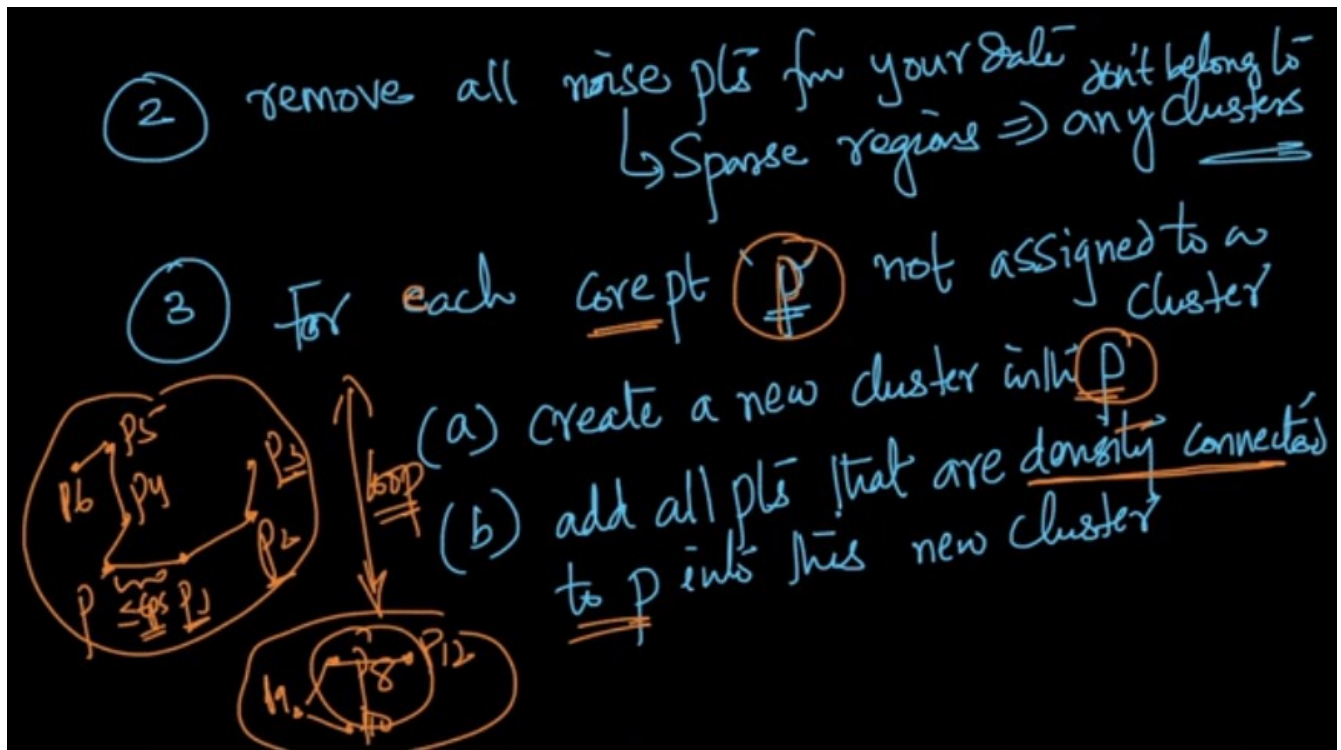 2 remove all noise pts fm your data don't belong to
↳ Sparse regions ⇒ any clusters
3 For each core pt p not assigned to a
cluster
(a) create a new cluster with p
(b) add all pts that are density connected
to p into this new cluster
loop
P5
P6
P4
P3
P2
P
≤ eps P1
P8 P12
P9
P10